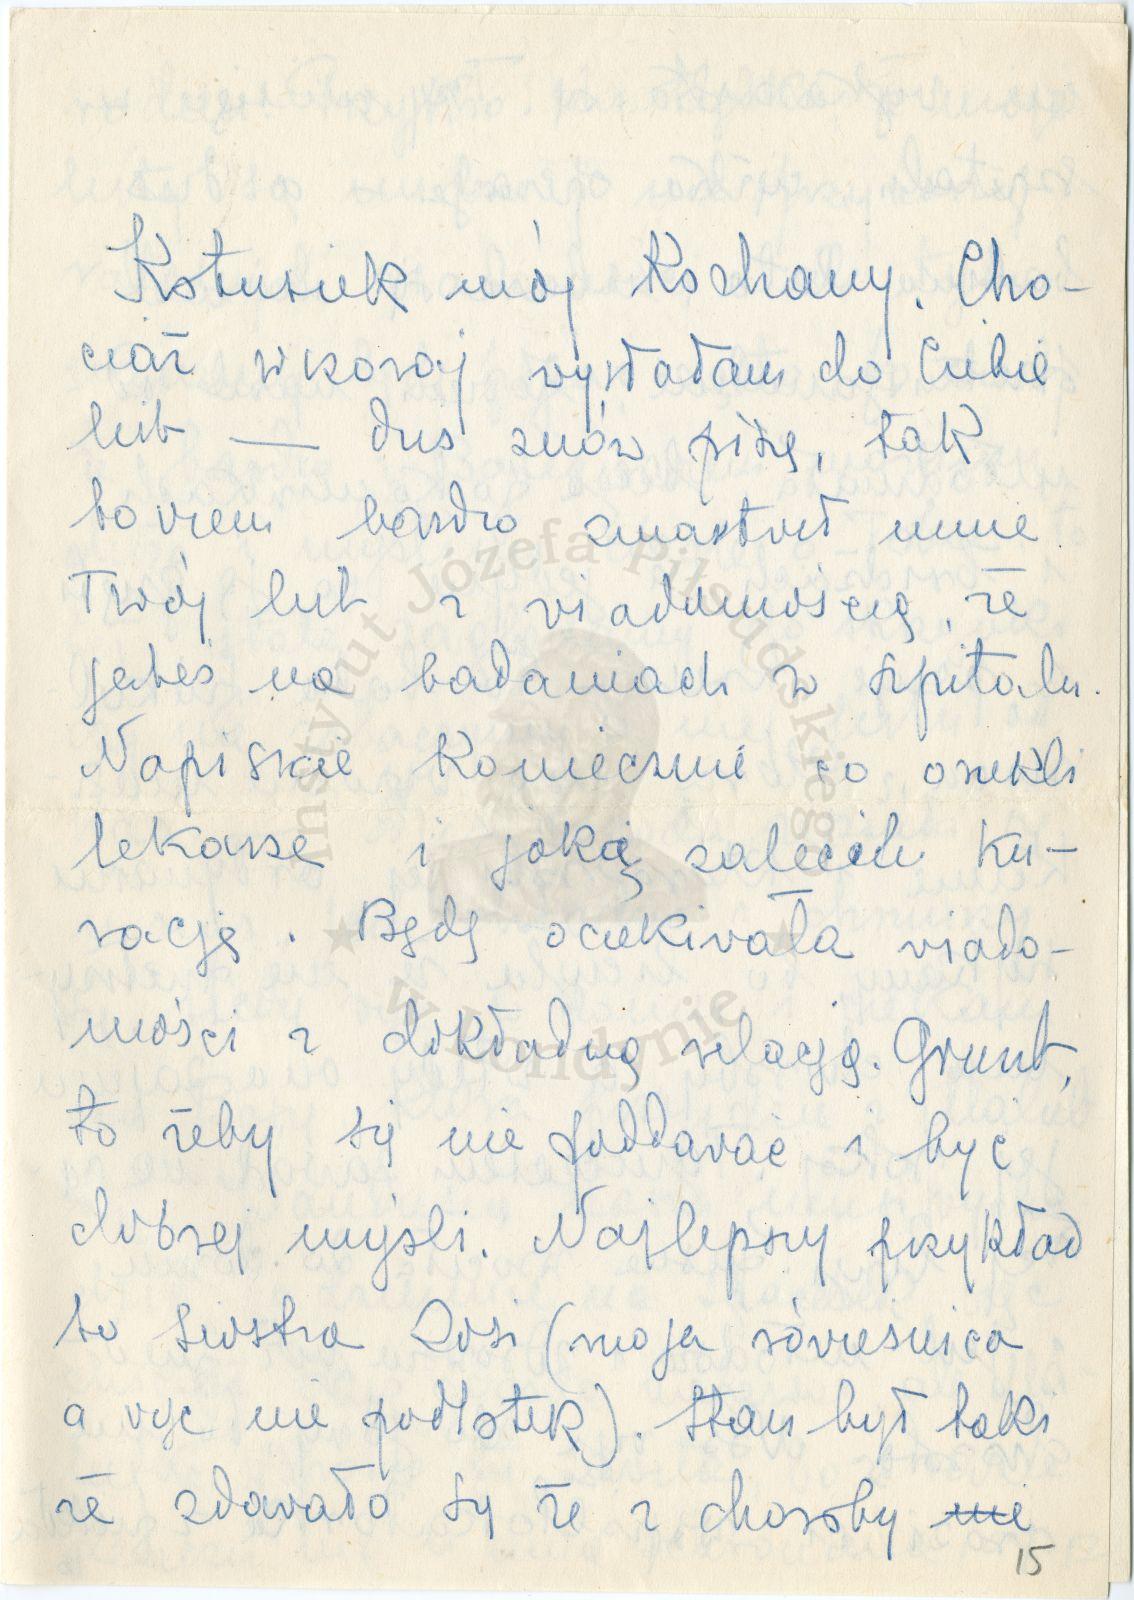 Kotusiek mój Kochany. Cho-
ciaż wczoraj wysłałam do Ciebie
list — dziś znów piszę, tak
bowiem bardzo zmartwił mnie
Twój list z wiadomością, że
jesteś na badaniach w szpitalu.
Napiszcie koniecznie co orzekli
lekarze i jaką zalecili ku-
rację. Będę oczekiwała wiado-
mości z dokładną relacją. Grunt,
to żeby się nie poddawać i być
dobrej myśli. Najlepszy przykład
to siostra Zosi (moja rówieśnica
a więc nie podlotek). Stan był taki
że zdawało się że z choroby nie
15
Instytut Józefa Piłsudskiego
w Londynie